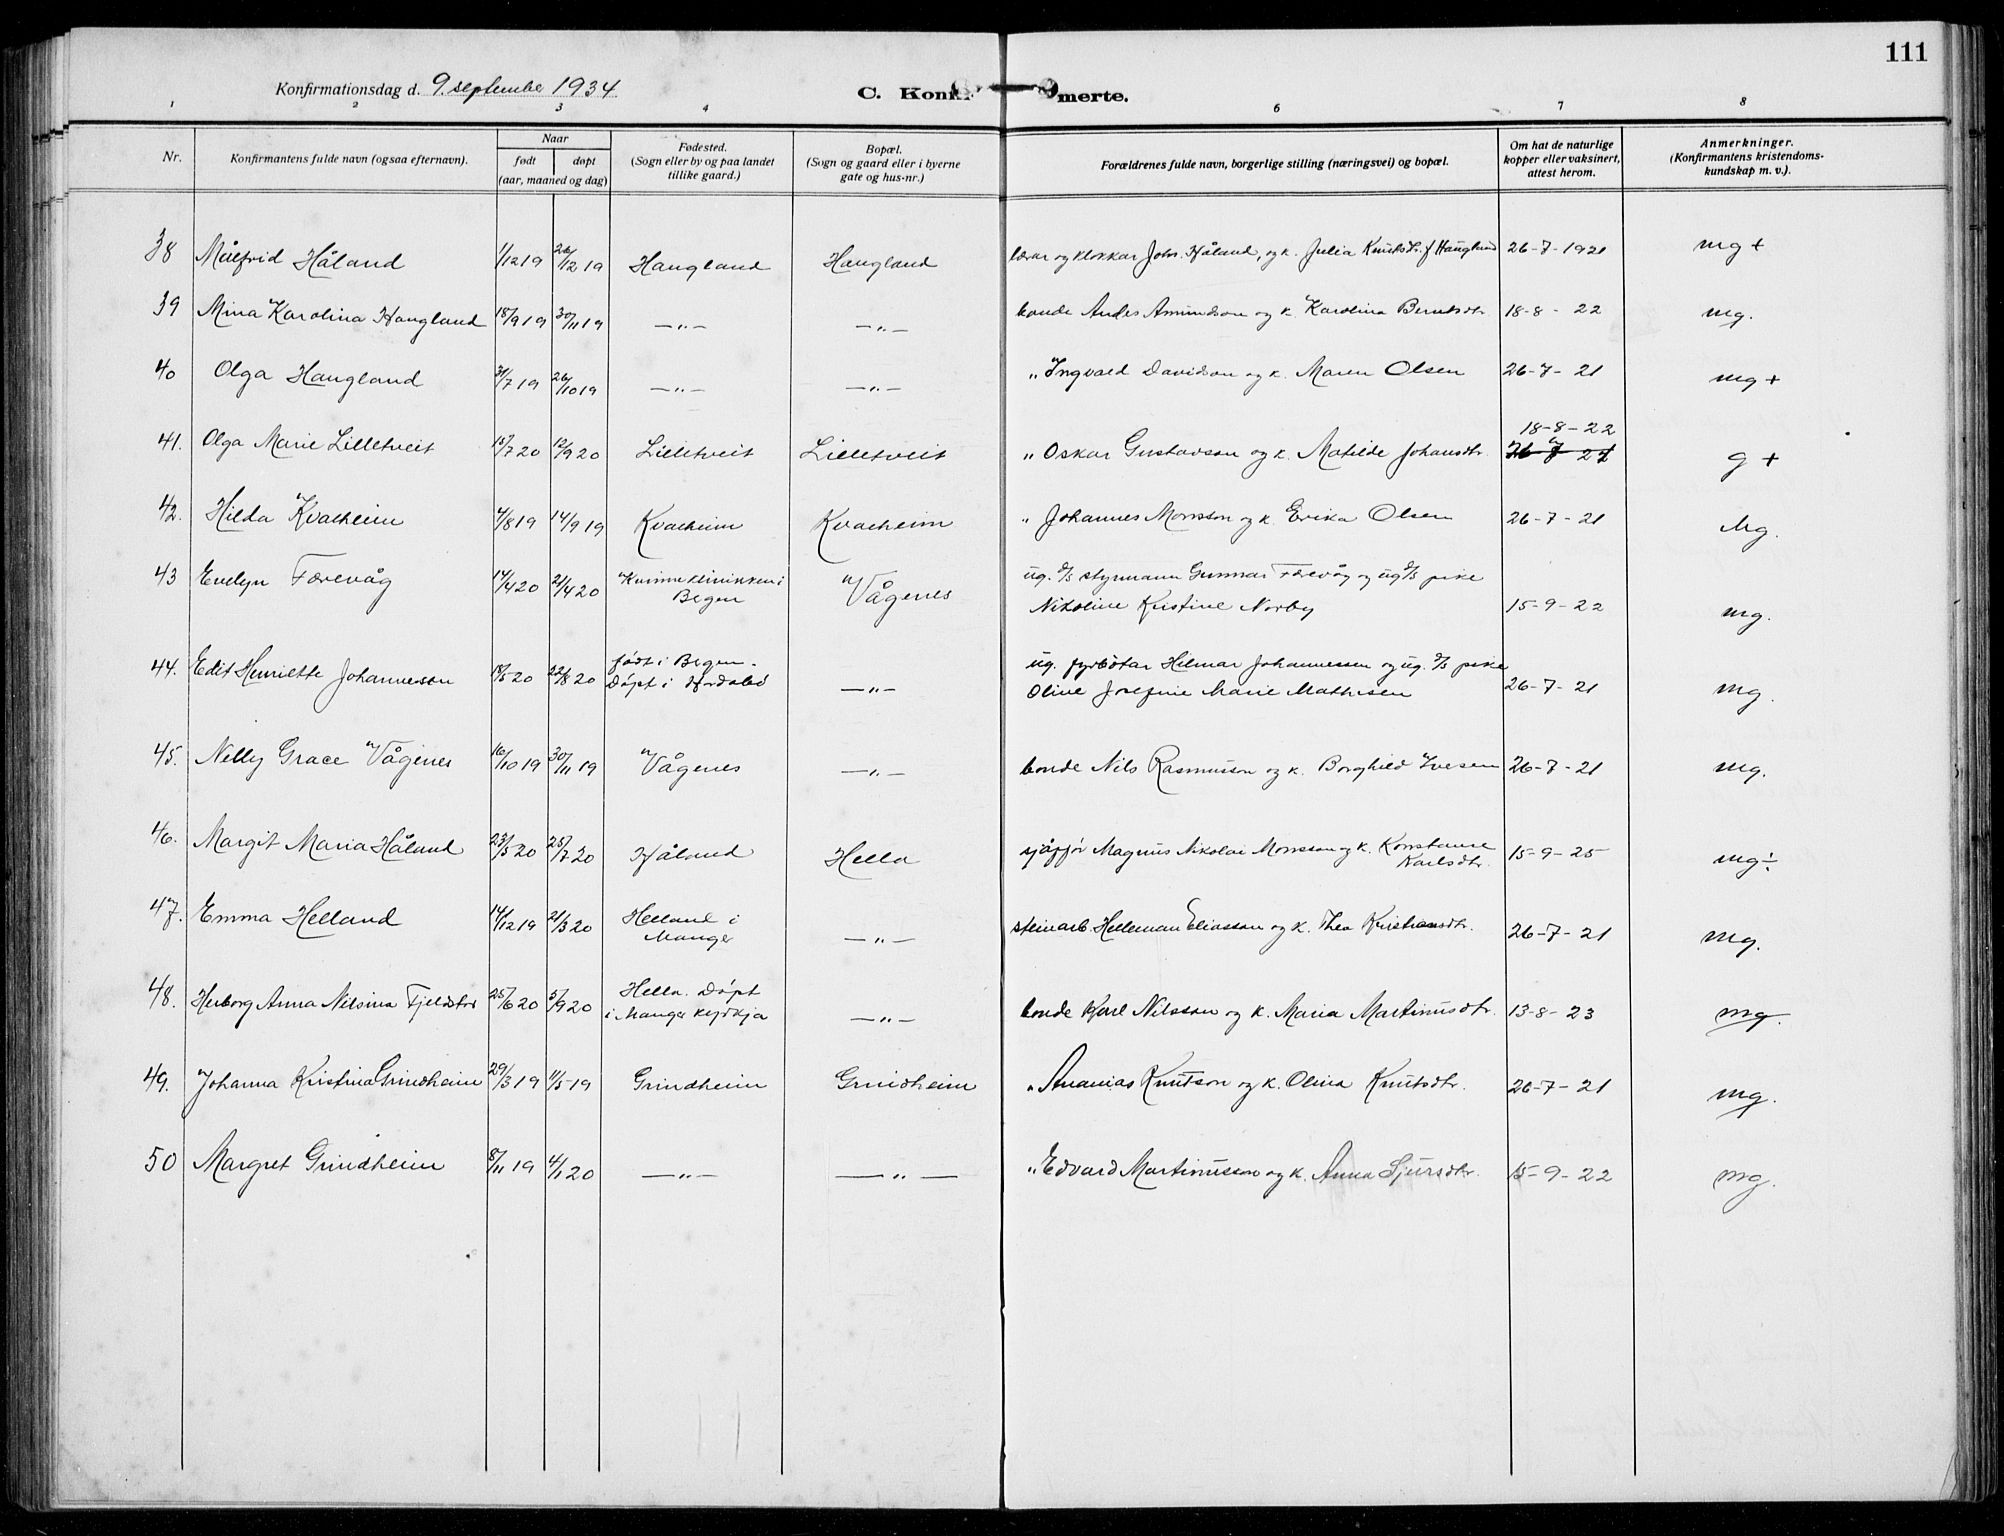 111
Konfirmationsdag d. 9. september 1934
C. Konfi merte.
1 2 3 4 6 7 8
Nr. Konfirmantens fulde navn (ogsaa efternavn). Naar født døpt (aar, maaned og dag) Fødested. (Sogn eller by og paa landet tillike gaard.) Bopæl. (Sogn og gaard eller i byerne gate og hus-nr.) Forældrenes fulde navn, borgerlige stilling (næringsvei) og bopæl. Om hat de naturlige kopper eller vaksinert, attest herom. Anmerkninger. (Konfirmantens kristendoms-kundskap m. v.).
38 Målfrid Håland 1/12 19 26/12 19 Haugland Haugland lærar og klokkar Joh. Håland, og k. Julia Knutsdtr. f Haugland 26-7-1921 mg +
39 Mina Karolina Haugland 18/9 19 30/11 19 —„— —„— bonde Anders Amundson og k. Karolina Berntsdtr 18-8-22 mg.
40 Olga Haugland 31/7 19 26/10 19 —„— —„— „ Ingvald Davidson og k. Maren Olsen 26-7-21 mg +
18-8-22
41. Olga Marie Lilletveit 15/7 20 12/9 20 Lilletveit Lilletveit „ Oskar Gustavson og k. Matilde Johansdtr. 26-7-21 g +
42. Hilda Kvalheim 4/8 19 14/9 19 Kvalheim Kvalheim „ Johannes Monsson og k. Erika Olsen 26-7-21 Mg.
43 Evelyn Færevåg 14/4 20 21/4 20 Kvinneklinikken i Vågenes ug. styrmann Gunnar Færevåg og ug. pike
Bergen Nikoline Kristine Norby 15-9-22 mg.
44. Edit Henriette Johannesen 18/5 20 22/8 20 født i Bergen. —„— ug. fyrbøtar Hilmar Johannessen og ug. pike
Døpt i Oline Josefine Marie Mathisen 26-7-21 mg.
45. Nelly Grace Vågenes 16/10 19 30/11 19 Vågenes —„— bonde Nils Rasmusson og k. Borghild Iversen 26-7-21 mg.
46. Margit Maria Håland 23/5 20 25/7 20 Håland Hella sjåfør Magnus Nikolai Monsson og k. Konstanse
Karlsdtr. 15-9-25 mg÷
47. Emma Helland 14/12 19 21/3 20 Helland i Manger —„— steinarb. Helleman Eliasson og k. Thea Kristiansdtr. 26-7-21 mg.
48. Herborg Anna Nilsina Fjeldstad 25/6 20 5/9 20 Hella. Døpt i Manger kyrkja —„— bonde Karl Nilsson og k. Maria Martinusdtr. 13-8-23 mg.
49. Johanna Kristina Grindheim 29/3 19 11/5 19 Grindheim Grindheim „ Ananias Knutson og k. Olina Knutsdtr. 26-7-21 mg.
50 Margret Grindheim 8/11 19 4/1 20 —„— —„— „ Edvard Martinusson og k. Anna Sjursdtr. 15-9-22 mg.